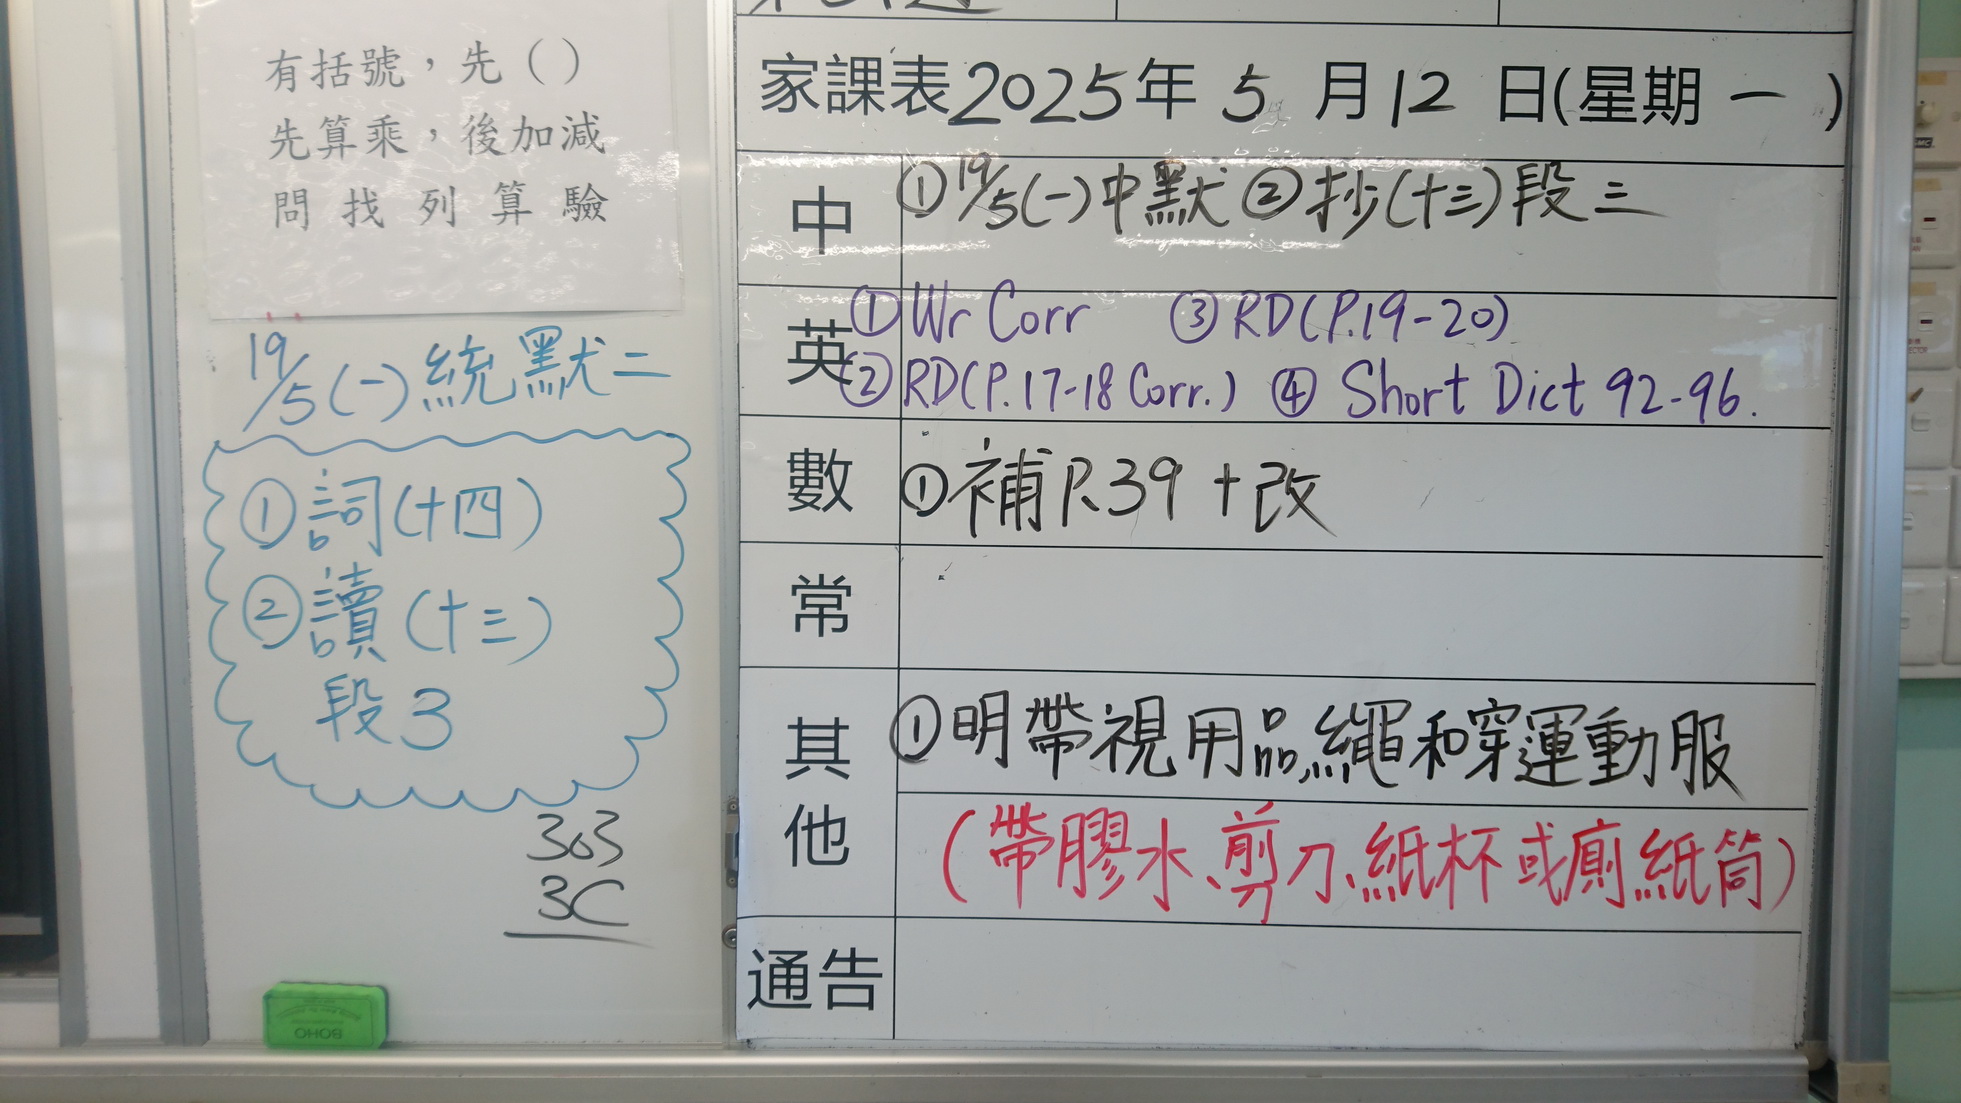 有括號，先（ ）
先算乘，後加減
問找列算驗
19/5(一)統默二
①詞(十四)
②讀(十三)
段3
303
3C
BOHO
家課表2025年5月12日(星期一)
中
①19/5(一)中默 ②抄(十三)段三
英
①Wr Corr ③RD(P.19-20)
②RD(P.17-18 Corr.) ④Short Dict 92-96.
數
①補P.39+改
常
其他
①明帶視用品,繩和穿運動服
(帶膠水、剪刀、紙杯或廁紙筒)
通告